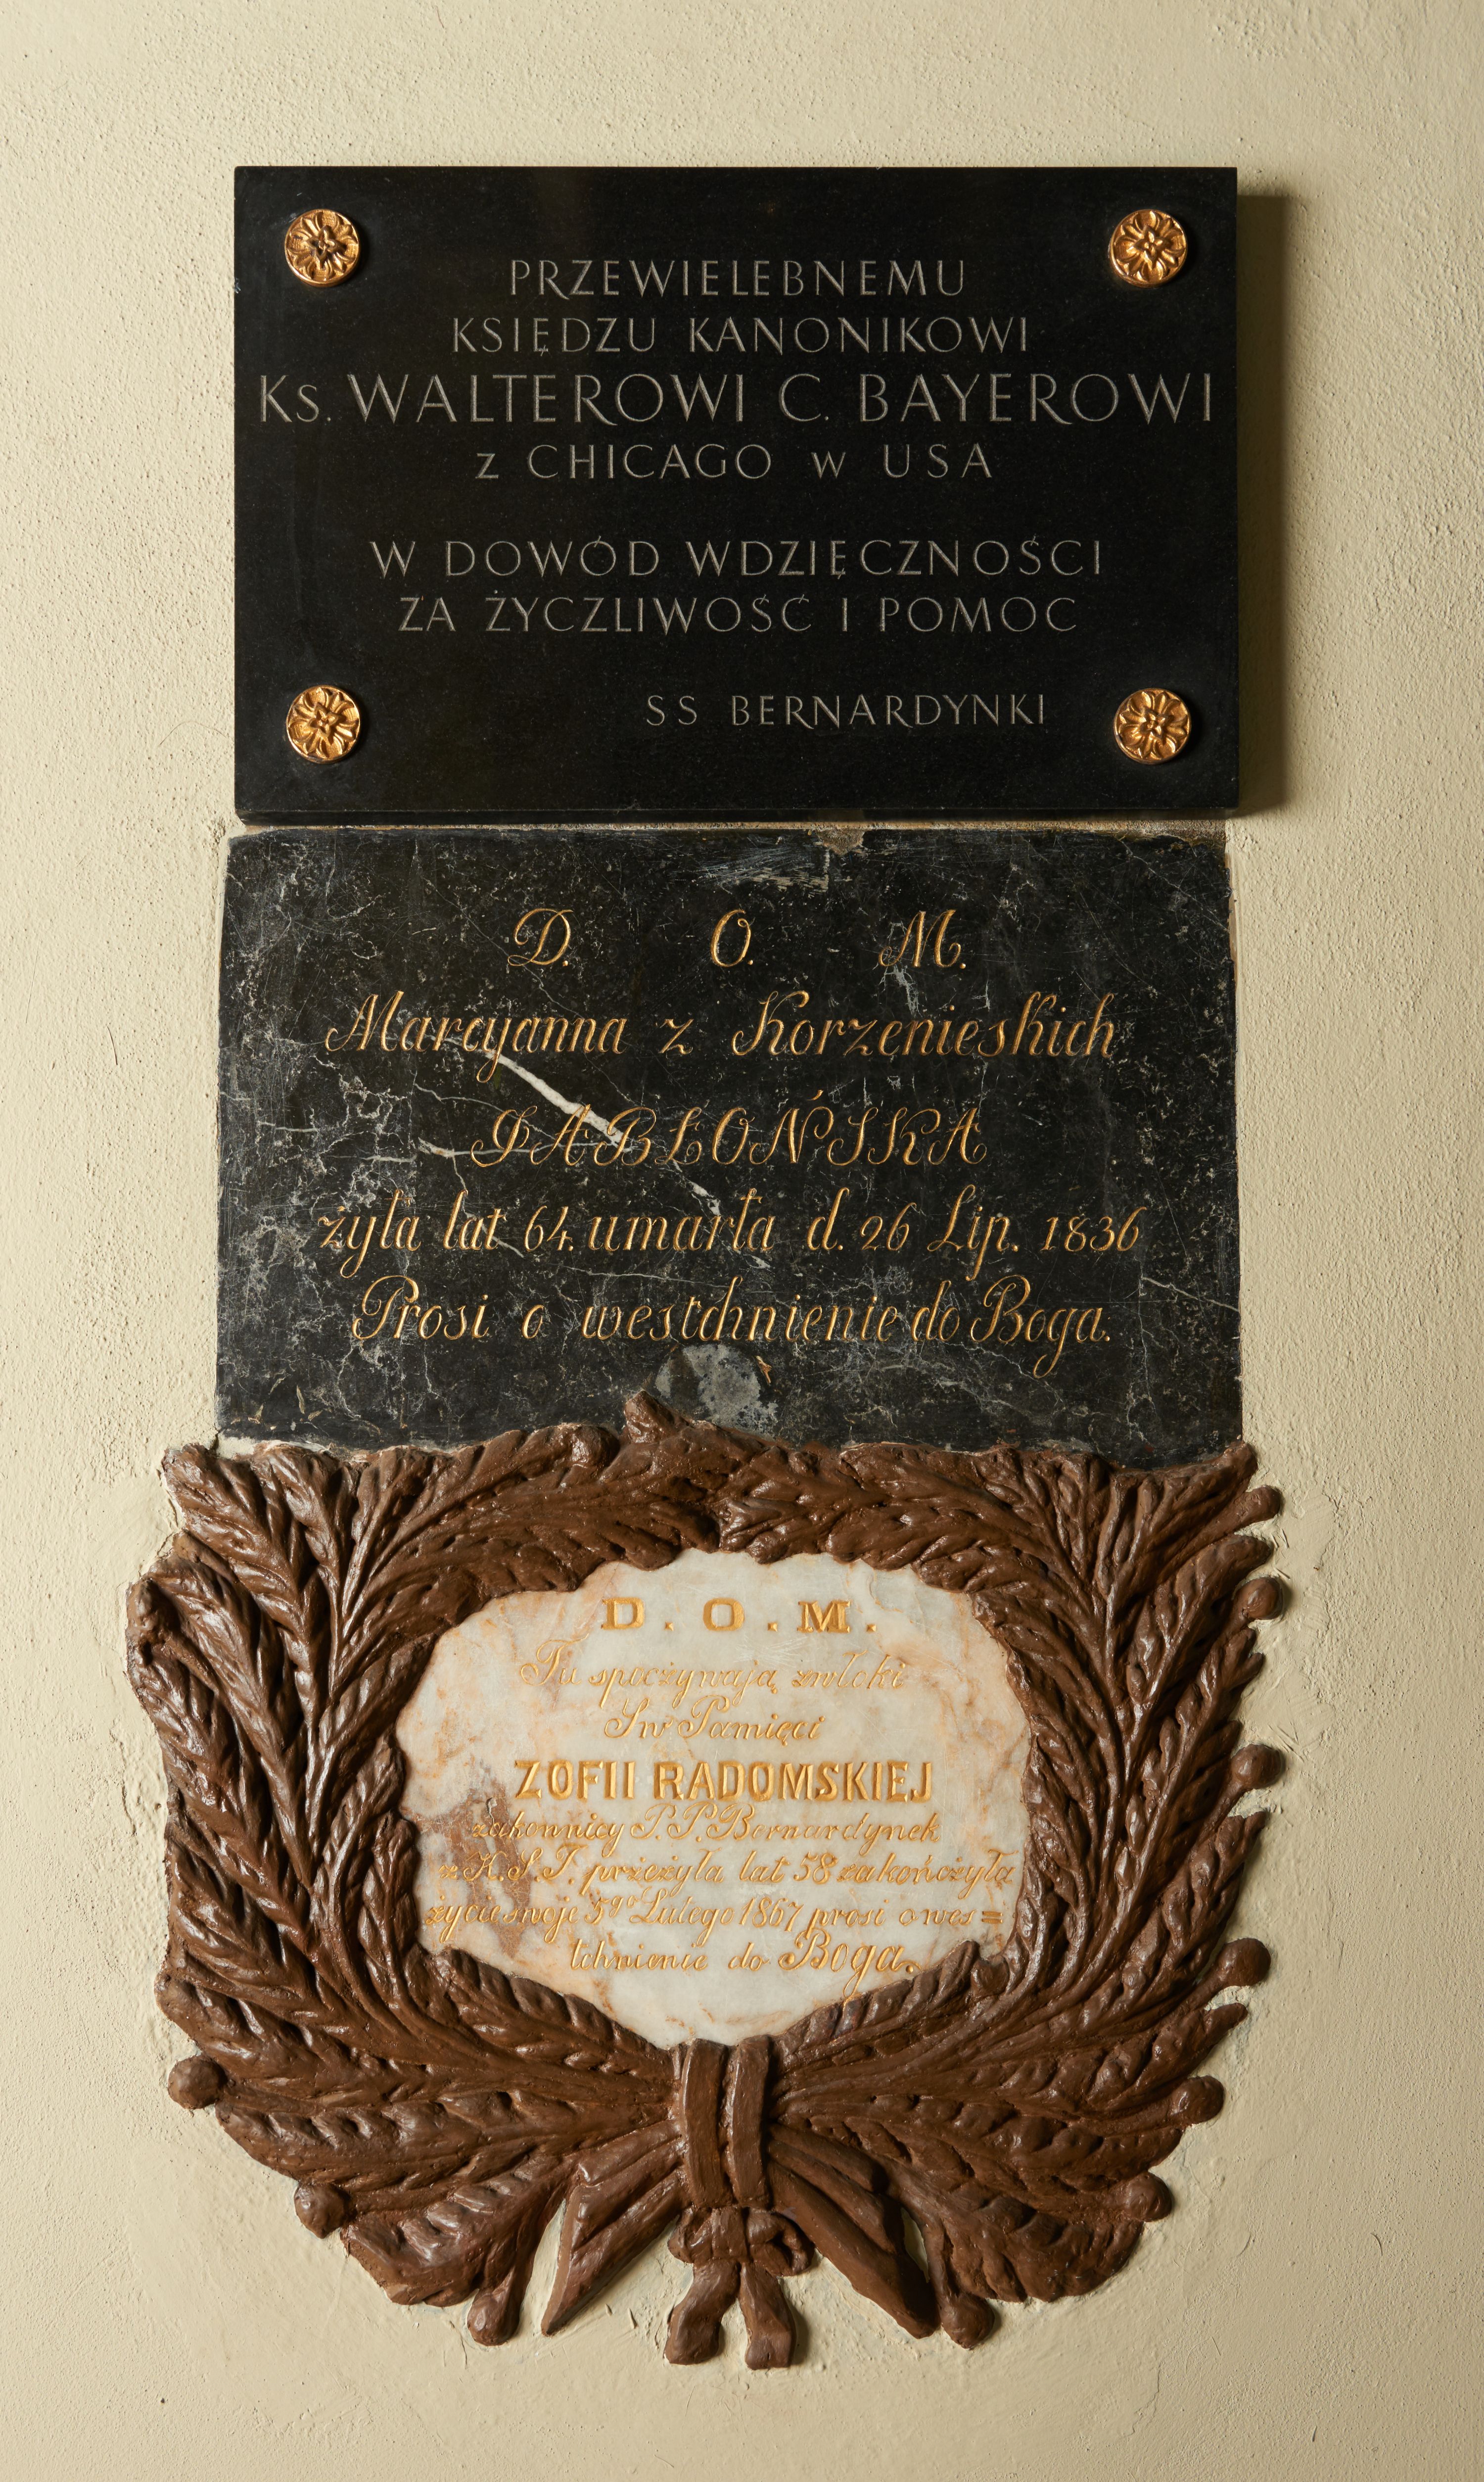 PRZEWIELEBNEMU
KSIĘDZU KANONIKOWI
Ks. WALTEROWI C. BAYEROWI
z CHICAGO w USA
W DOWÓD WDZIĘCZNOŚCI
ZA ŻYCZLIWOŚĆ I POMOC
SS BERNARDYNKI
D. O. M.
Marcyanna z Korzenieskich
JABŁOŃSKA
żyła lat 64. umarła d. 26 Lip. 1836
Prosi o westchnienie do Boga.
D. O. M.
Tu spoczywają zwłoki
Sw Pamięci
ZOFII RADOMSKIEJ
zakonnicy P. P. Bernardynek
z K. S. J. przeżyła lat 58 zakończyła
życie swoje 5go Lutego 1867 prosi o wes=
tchnienie do Boga.